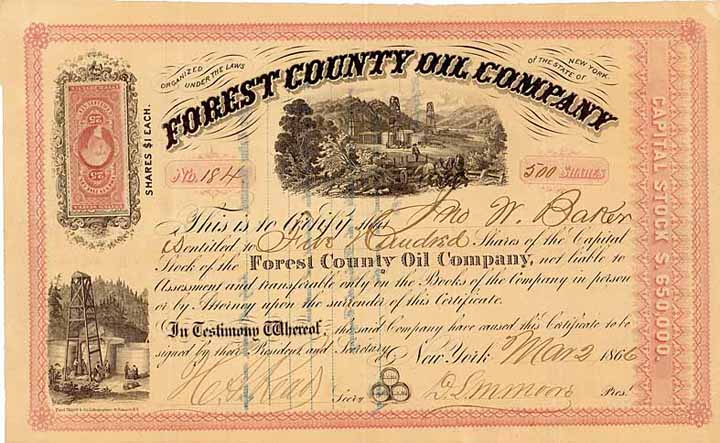 ORGANIZED UNDER THE LAWS OF THE STATE OF NEW YORK
FOREST COUNTY OIL COMPANY
SHARES $1 EACH.
25
25
No. 184
500 SHARES
This is to Certify that Jno W. Baker
is entitled to Five Hundred Shares of the Capital
Stock of the Forest County Oil Company, not liable to
Assessment and transferable only on the Books of the Company in person
or by Attorney upon the surrender of this Certificate.
In Testimony Whereof, the said Company have caused this Certificate to be
signed by their President and Secretary
New York Mar 2 1866
Secry
Prest
CAPITAL STOCK $650,000.